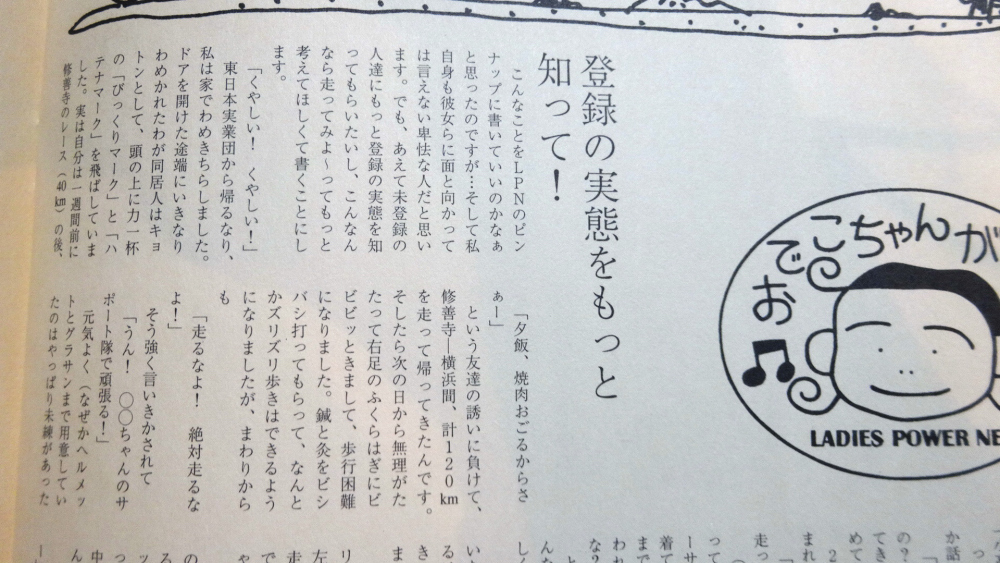 登録の実態をもっと
知って！
こんなことをLPNのピン
ナップに書いていいのかなぁ
と思ったのですが…そして私
自身も彼女らに面と向かって
は言えない卑怯な人だと思い
ます。でも、あえて未登録の
人達にもっと登録の実態を知
ってもらいたいし、こんなん
なら走ってみよ～ってもっと
考えてほしくて書くことにし
ます。
「くやしい！　くやしい！」
東日本実業団から帰るなり、
私は家でわめきちらしました。
ドアを開けた途端にいきなり
わめかれたわが同居人はキョ
トンとして、頭の上に力一杯
の「びっくりマーク」と「ハ
テナマーク」を飛ばしていま
した。実は自分は一週間前に
修善寺のレース（40km）の後、
「夕飯、焼肉おごるからさ
ぁー」
という友達の誘いに負けて、
修善寺―横浜間、計120km
を走って帰ってきたんです。
そしたら次の日から無理がた
たって右足のふくらはぎにビ
ビビッときまして、歩行困難
になりました。鍼と灸をビシ
バシ打ってもらって、なんと
かズリズリ歩きはできるよう
になりましたが、まわりから
も
「走るなよ！　絶対走るな
よ！」
そう強く言いきかされて
「うん！　〇〇ちゃんのサ
ポート隊で頑張る！」
元気よく（なぜかヘルメッ
トとグラサンまで用意してい
たのはやっぱり未練があった
おでこちゃんが
LADIES POWER NE